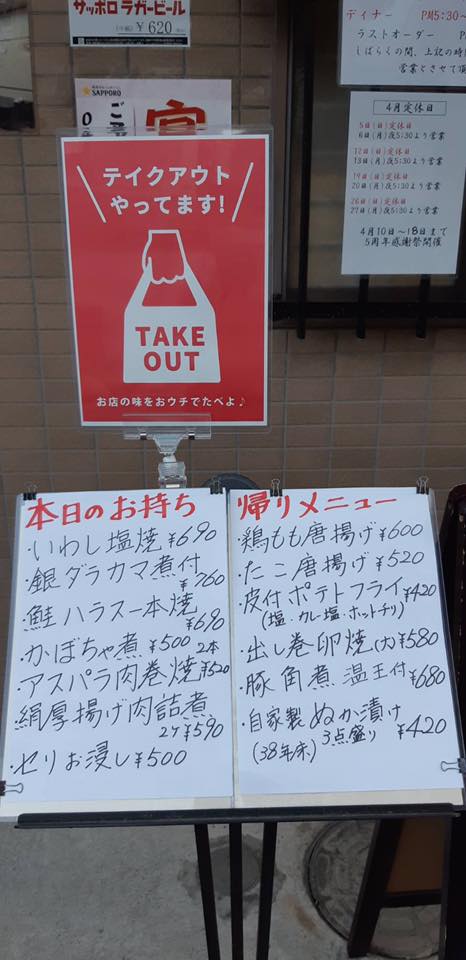 サッポロ ラガービール
(中瓶) ¥620
SAPPORO
ディナー PM5:30~
ラストオーダー P
しばらくの間、上記の時
営業とさせて頂
4月定休日
5日(日)定休日
6日(月)夜5:30より営業
12日(日)定休日
13日(月)夜5:30より営業
19日(日)定休日
20日(月)夜5:30より営業
26日(日)定休日
27日(月)夜5:30より営業
4月10日~18日まで
5周年感謝祭開催
テイクアウト
やってます!
TAKE
OUT
お店の味をおウチでたべよ♪
本日のお持ち
・いわし塩焼¥690
・銀ダラカマ煮付
¥760
・鮭ハラス一本焼
¥690
・かぼちゃ煮¥500
・アスパラ肉巻焼 2本 ¥520
・絹厚揚げ肉詰煮
2ケ¥590
・セリお浸し¥500
帰りメニュー
・鶏もも唐揚げ¥600
・たこ唐揚げ¥520
・皮付ポテトフライ¥420
(塩・カレー塩・ホットチリ)
・出し巻卵焼(大)¥580
・豚角煮 温玉付¥680
・自家製ぬか漬け
(38年床)3点盛り¥420